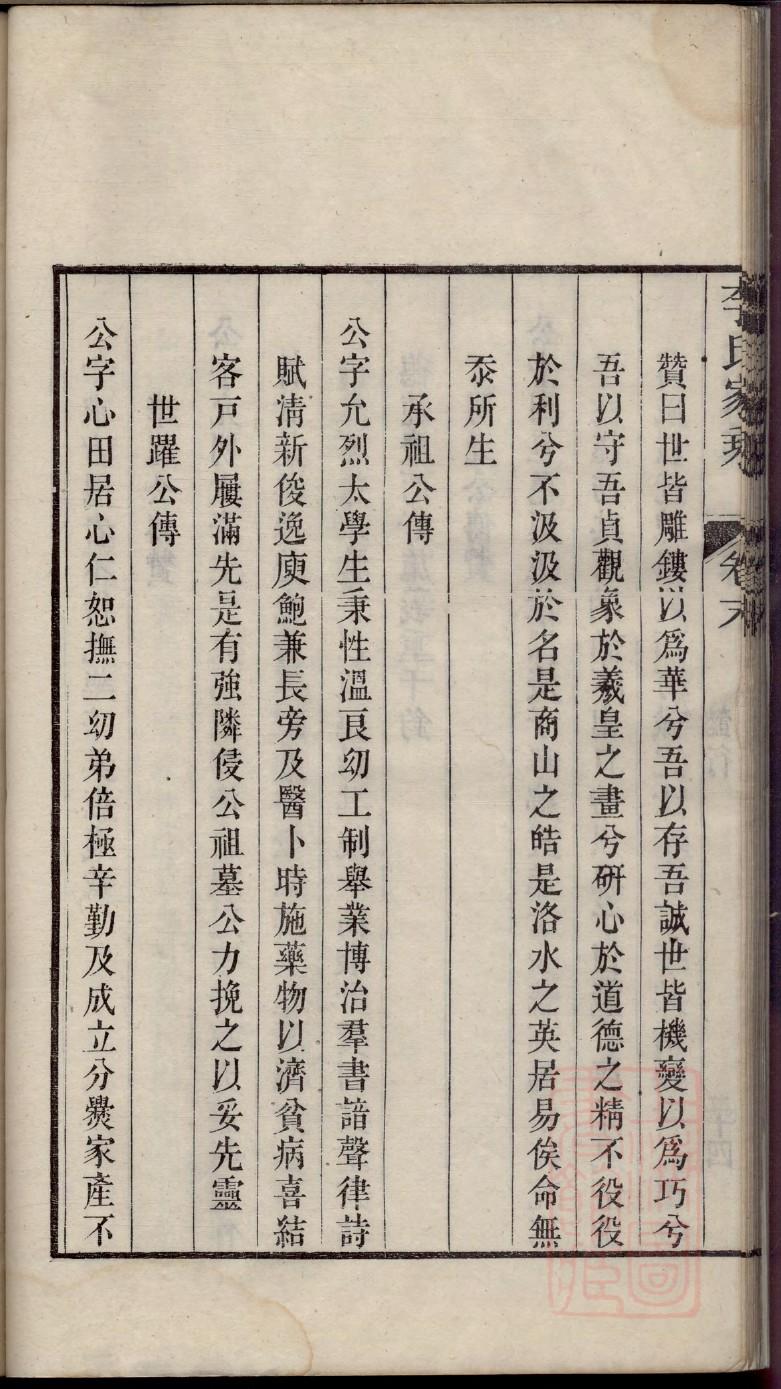 李氏家乘 卷末
贊曰世皆雕鏤以爲華兮吾以存吾誠世皆機變以爲巧兮
吾以守吾貞觀象於羲皇之畫兮研心於道德之精不役役
於利兮不汲汲於名是商山之皓是洛水之英居易俟命無
忝所生
承祖公傳
公字允烈太學生秉性溫良幼工制舉業博洽羣書諳聲律詩
賦清新俊逸庾鮑兼長旁及醫卜時施藥物以濟貧病喜結
客戸外屨滿先是有強隣侵公祖墓公力挽之以妥先靈
世躍公傳
公字心田居心仁恕撫二幼弟倍極辛勤及成立分爨家產不